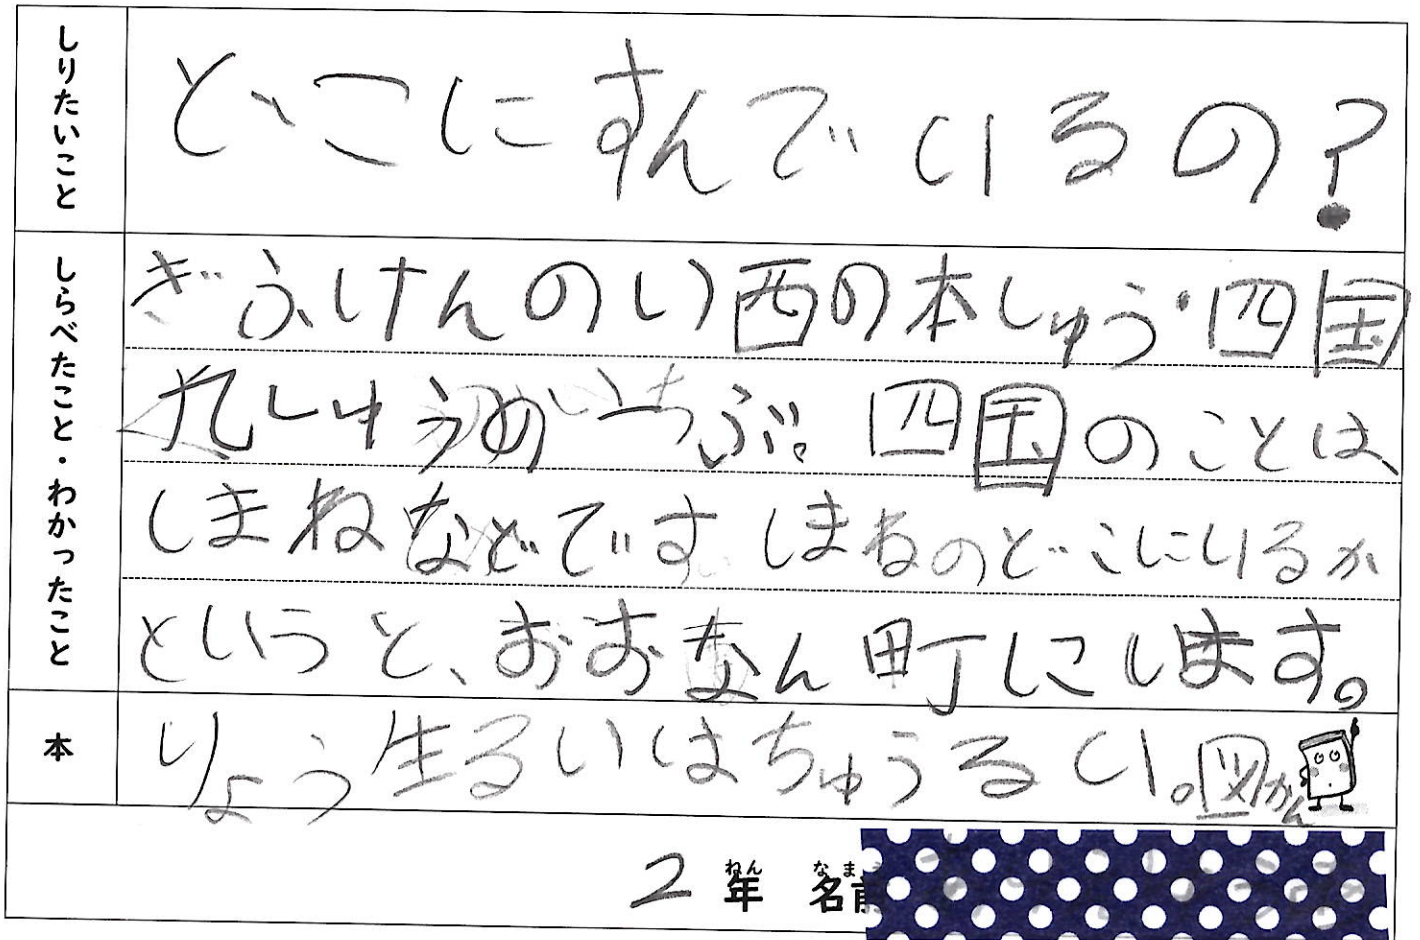 しりたいこと
どこにすんでいるの?
しらべたこと・わかったこと
ぎふけんのい西の本しゅう・四国
九しゅうのいちぶ。四国のことは、
しまねなどです。しまねのどこにいるか
というと、おおなん町にします。
本
りょう生るいはちゅうるい。図かん
2年 名前
ねん なまえ